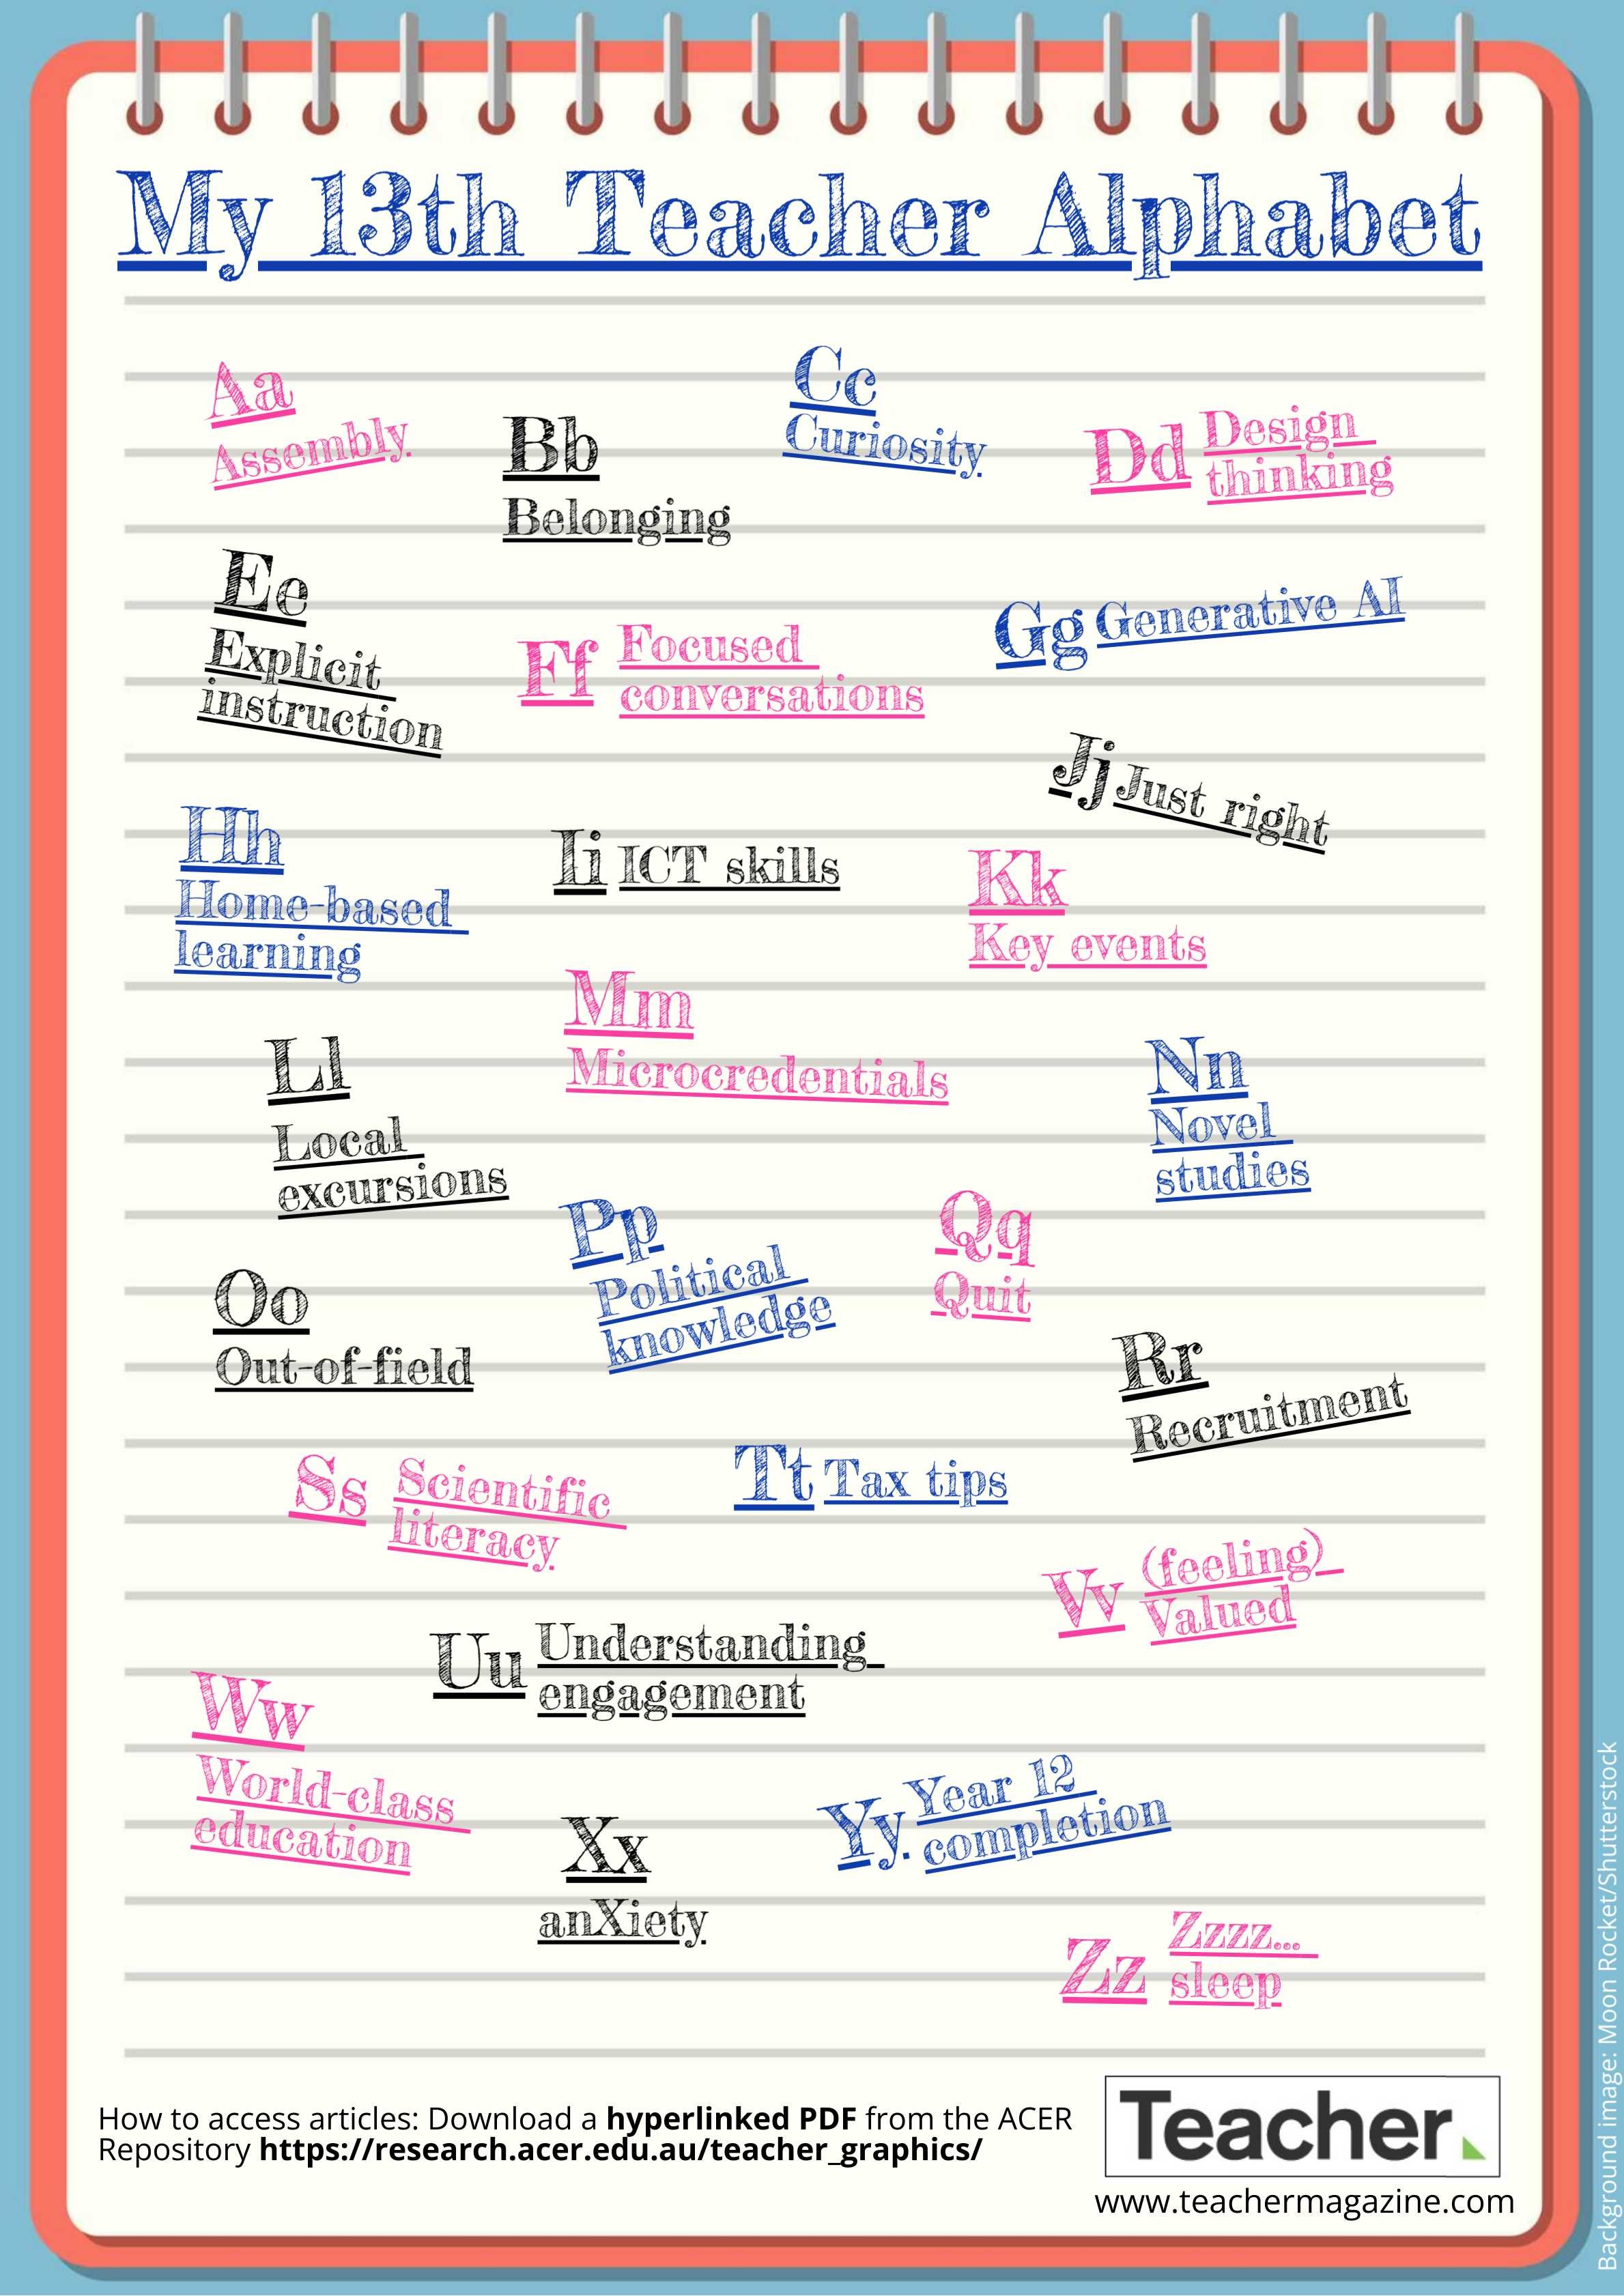 My 13th Teacher Alphabet
Aa
Assembly
Bb
Belonging
Cc
Curiosity
Dd
Design
thinking
Ee
Explicit
instruction
Ff
Focused
conversations
Gg
Generative AI
Hh
Home-based
learning
Ii
ICT skills
Jj
Just right
Kk
Key events
Ll
Local
excursions
Mm
Microcredentials
Nn
Novel
studies
Oo
Out-of-field
Pp
Political
knowledge
Qq
Quit
Rr
Recruitment
Ss
Scientific
literacy
Tt
Tax tips
Uu
Understanding
engagement
Vv
(feeling)
Valued
Ww
World-class
education
Xx
anXiety
Yy
Year 12
completion
Zz
Zzzz...
sleep
How to access articles: Download a hyperlinked PDF from the ACER
Repository https://research.acer.edu.au/teacher_graphics/
Teacher
www.teachermagazine.com
Background image: Moon Rocket/Shutterstock